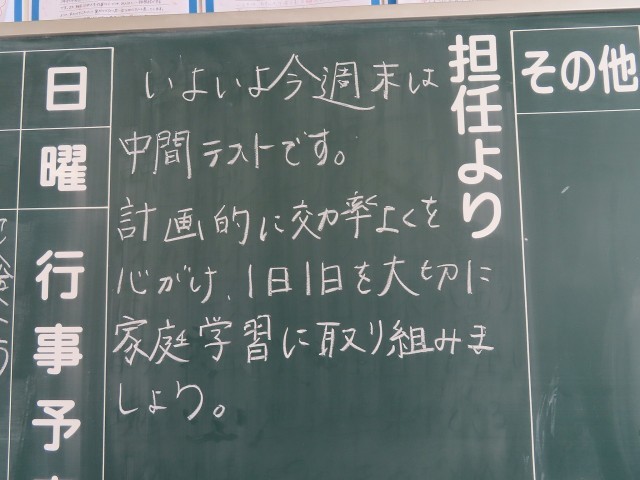 その他
担任より
いよいよ今週末は
中間テストです。
計画的に効率よくを
心がけ、1日1日を大切に
家庭学習に取り組みま
しょう。
日
曜
行事予